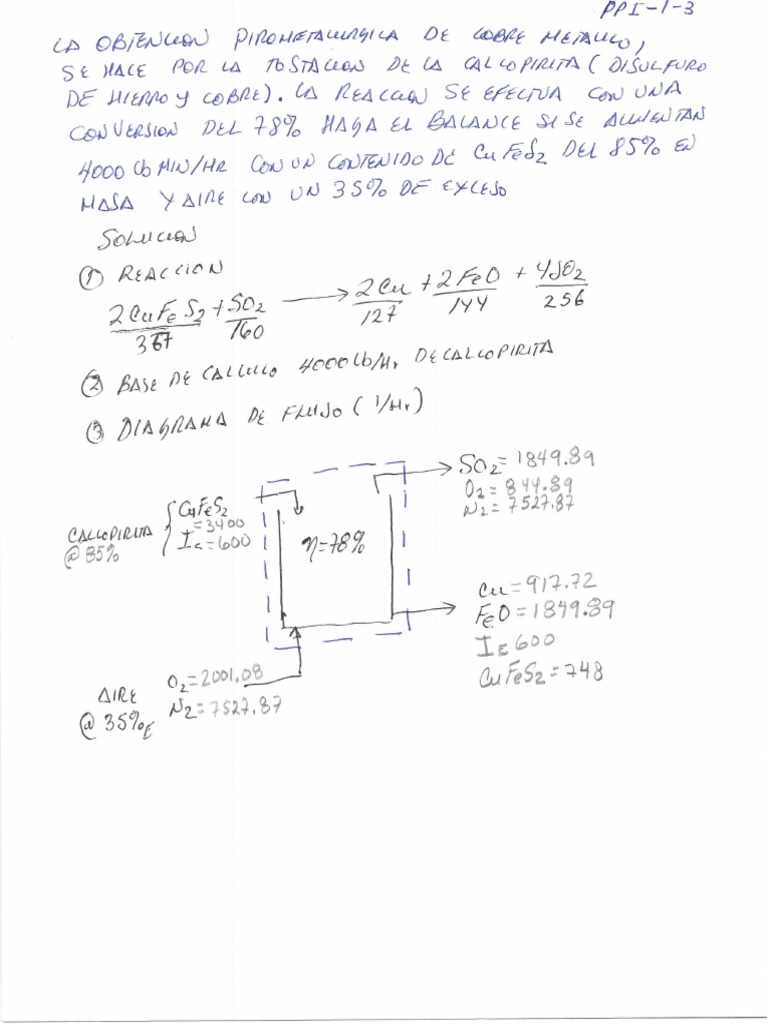 PPI-1-3
LA OBTENCION PIROMETALURGICA DE COBRE METALICO,
SE HACE POR LA TOSTACION DE LA CALCOPIRITA (DISULFURO
DE HIERRO Y COBRE). LA REACCION SE EFECTUA CON UNA
CONVERSION DEL 78% HAGA EL BALANCE SI SE ALIMENTAN
4000 Lb MIN/HR CON UN CONTENIDO DE CuFeS2 DEL 85% EN
MASA Y AIRE CON UN 35% DE EXCESO
SOLUCION
① REACCION
2CuFeS2 + 5O2 → 2Cu + 2FeO + 4SO2
367 160 127 144 256
② BASE DE CALCULO 4000Lb/Hr DE CALCOPIRITA
③ DIAGRAMA DE FLUJO (1/Hr)
SO2=1849.89
O2=844.89
N2=7527.87
CALCOPIRITA
@ 85%
CuFeS2
=3400
Ic=600
η=78%
Cu=917.72
FeO=1849.89
IE 600
CuFeS2=748
AIRE
@ 35%E
O2=2001.08
N2=7527.87